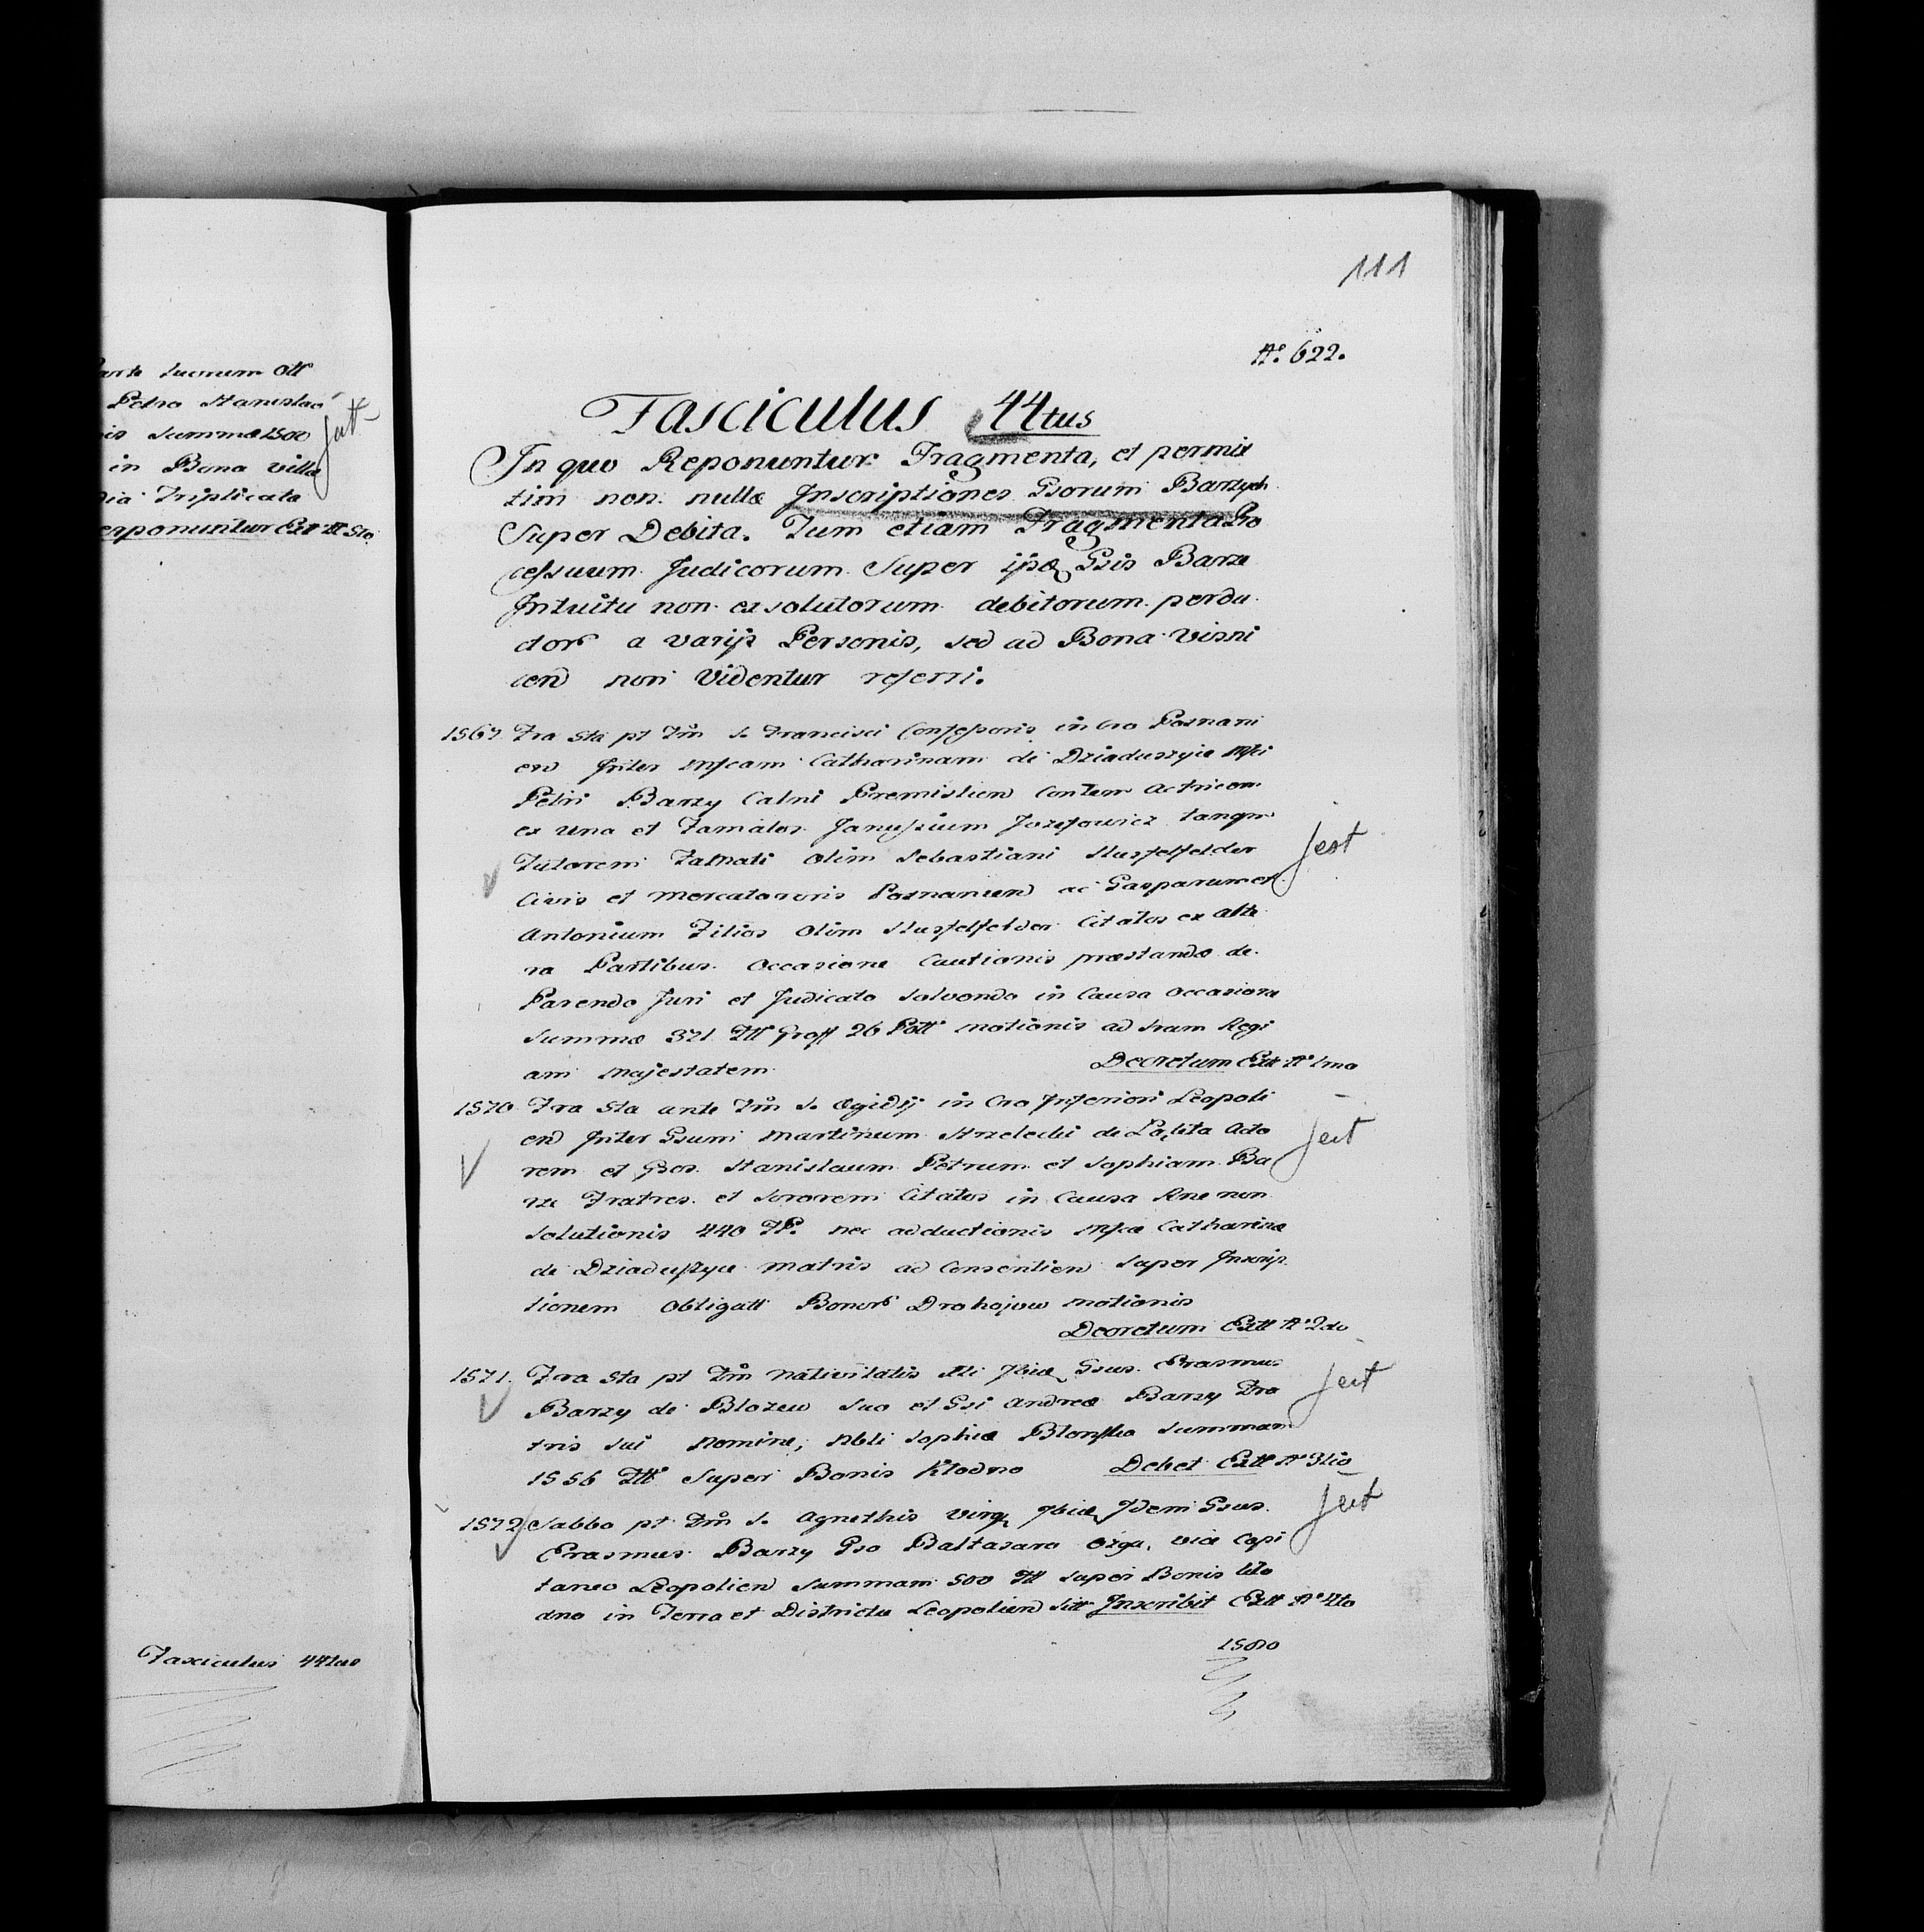 arte suorum Ott
Petro Stanislao
is Summæ 1500
in Bona villa
dia Triplicata
exponuntur Extt N 5to
jest
Fasciculus 44tus
111
N° 622.
Fasciculus 44tus
In quo Reponuntur Fragmenta, et permix
tim non nullæ Inscriptiones Gsorum Barzych
Super Debita. Tum etiam Fragmenta Pro
cessuum Judicorum Super ipsos Gsis Barze
Intuitu non exsolutorum debitorum perdu
dor a varijs Personis, sed ad Bona Visni
cen non Videntur referri.
1569 Fra 5ta pt Fm S. Francisci Confessoris in Cro Posnani
en Inter Mfcam Catharinam de Dziaduszyce Mfci
Petri Barzy Calni Premislien Contem Actricem
ex una et Famatos Janussium Jozefowicz tanqm
Tutorem Famati olim Sebastiani Husfelfelder
Civis et Mercatoris Posnanien ac Gasparum et
Antonium Filios olim Husfelfelder Citatos ex alte
ra Partibus. Occasione Cautionis præstandæ de
Parendo Juri et Judicato Solvendo in Causa Occasione
Summæ 321 Ftt Gross 26 Pott motionis ad Sram Regi
am Majestatem
Decretum Extt N° 1mo
jest
1570 Fra 5ta ante Fm S. Ægidij in Cro Inferiori Leopoli
en Inter Gsum Martinum Strzelecki de Łalita Acto
rem et Gsos Stanislaum Petrum et Sophiam Ba
rze Fratres et Sororem Citatos in Causa Rne non
Solutionis 440 Ft. nec adductionis Mfca Catharinæ
de Dziaduszyce Matris ad Consentien Super Inscrip
tionem Obligatt Bonor Drohojow motionis
Decretum Extt N° 2do
jest
1571. Fra 5ta pt Fm Nativitatis Mi Ibidem Gsus Erasmus
Barzy de Blozew Suo et Gsi Andreæ Barzy Fra
tris sui Nomine, Nbli Sophiæ Blonska Summam
1556 Ftt Super Bonis Kłodno Debet Extt N° 3tio
jest
1572 Sabbo pt Fm S. Agnethis Virg Ibidem Idem Gsus
Erasmus Barzy Gso Baltasaro Ożga, vice Capi
taneo Leopolien Summam 500 Ftt Super Bonis Klo
dno in Terra et Districtu Leopolien Sitt Inscribit Extt N° 4to
jest
1580